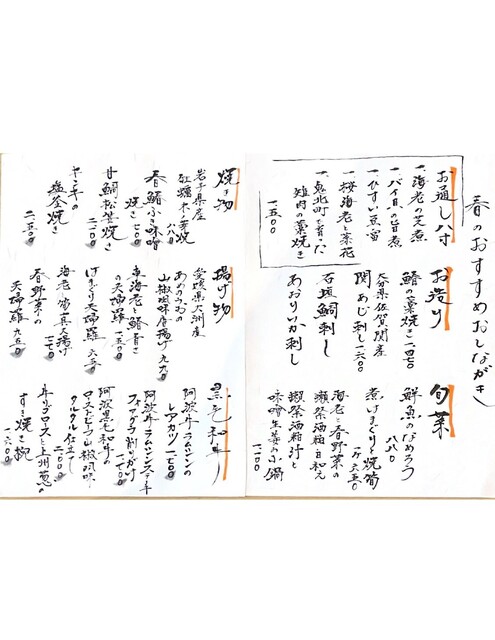 春のおすすめおしながき
お通し八寸
一、海老の芝煮
一、バイ貝の旨煮
一、ひすい豆富
一、桜海老と菜花
一、鬼北町で育った
雉肉の藁焼き
一、五〇〇
お造り
鰆の藁焼き
大分県佐賀関産
関あじ刺し 一、六〇〇
石垣鯛刺し
あおりいか刺し
旬菜
鮮魚のなめろう
八八〇
煮はまぐりと焼筍
一ケ 六五〇
海老と春野菜の
獺祭酒粕白和え
獺祭酒粕汁と
味噌生姜の小鍋
一、一〇〇
焼き物
岩手県産
牡蠣
八八〇
春鰆ふき味噌
焼き 一、二〇〇
甘鯛松笠焼き
二、一〇〇
塩釜焼き
二、五〇〇
揚げ物
愛媛県大洲産
あめのうおの
山椒風味唐揚げ 九九〇
車海老と鱚
の天婦羅
はまぐり天婦羅 六五〇
海老
春野菜の
天婦羅 九五〇
黒毛和牛
阿波牛ラムシンの
レアカツ 一、七〇〇
阿波牛ラムシンステーキ
フォアグラ削りがけ
阿波黒毛和牛の
ローストビーフ山椒風味
タルタル仕立て
二、〇〇〇
牛リブロースと上州葱の
すき焼き椀
一、六〇〇